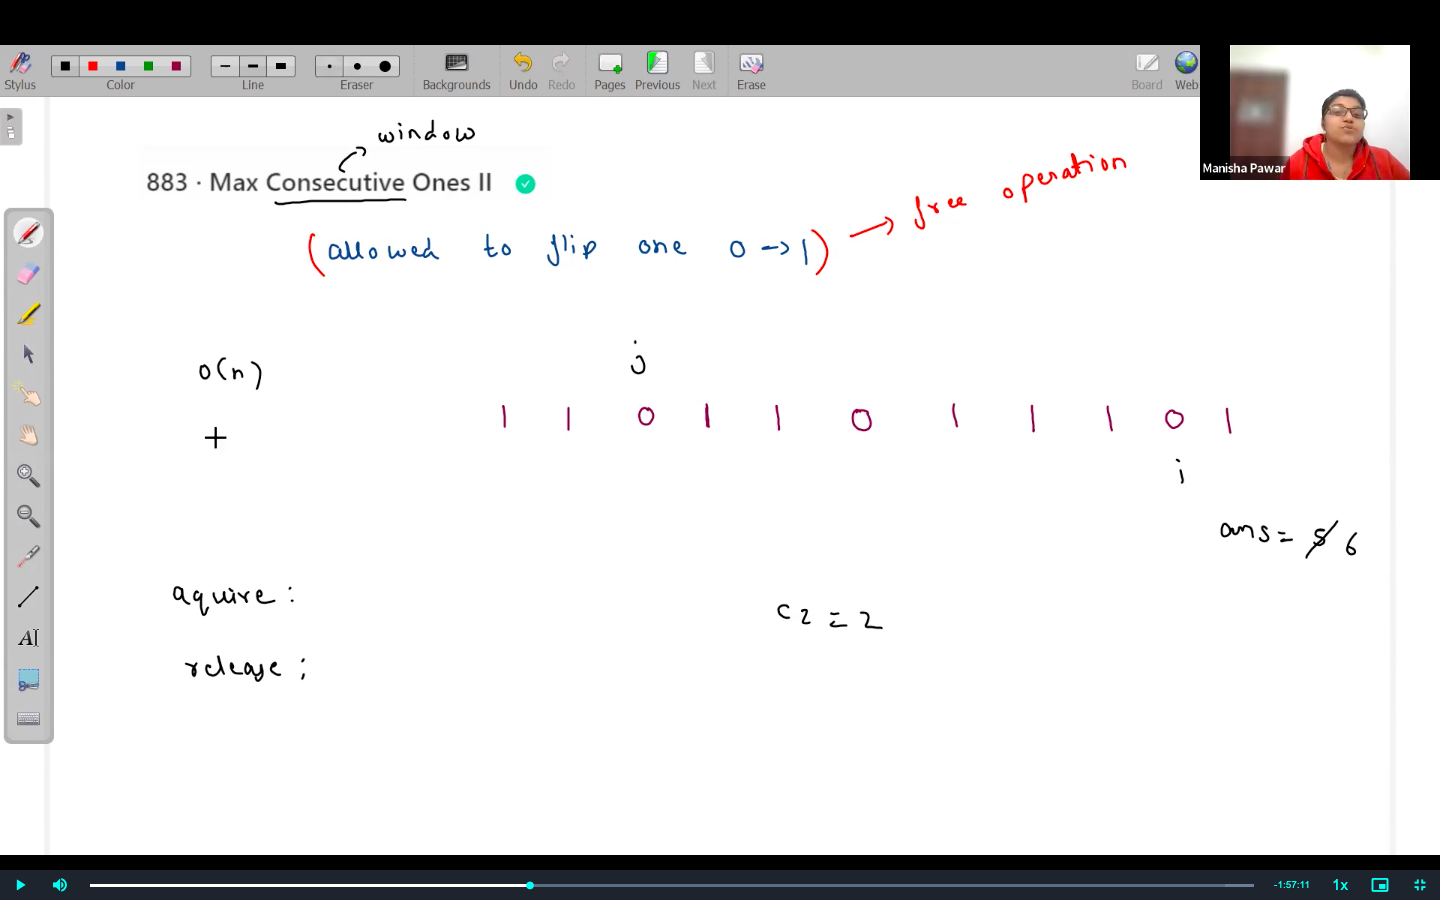 Stylus Color Line Eraser Backgrounds Undo Redo Pages Previous Next Erase Board Web
Manisha Pawar
window
883 · Max Consecutive Ones II
free operation
(allowed to flip one 0 -> 1)
j
o(n)
1 1 0 1 1 0 1 1 1 0 1
+
i
ans = 5 6
aquire :
c2 = 2
release ;
AI
-1:57:11 1x